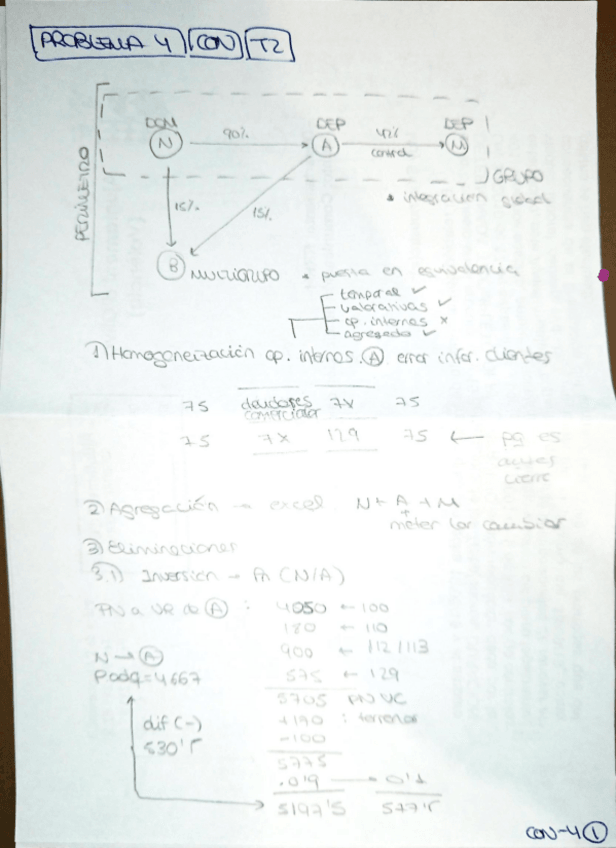 PROBLEMA 4 CON T2
DOM DEP DEP
N 90% A 42% M
control
GRUPO
* integración global
PERÍMETRO
15% 15%
B MULTIGRUPO * puesta en equivalencia
temporal ✓
valorativas ✓
op. internas x
agregado ✓
1) Homogeneización op. internas. A error infor. clientes
75 deudores comerciales 7x 75
75 7x 129 75 ← pq es
antes
cierre
2) Agregación → excel N + A + M
+
meter los cambios
3) Eliminaciones
3.1) Inversión → FA (N/A)
PN a VR de A : 4050 ← 100
180 ← 110
900 ← 112/113
575 ← 129
5705 PN VC
+190 : terrenos
-100
5775
·0'9 → ·0'1
5197'5 577'5
N → A
Padq = 4667
dif (-)
530'5
CON-4 1